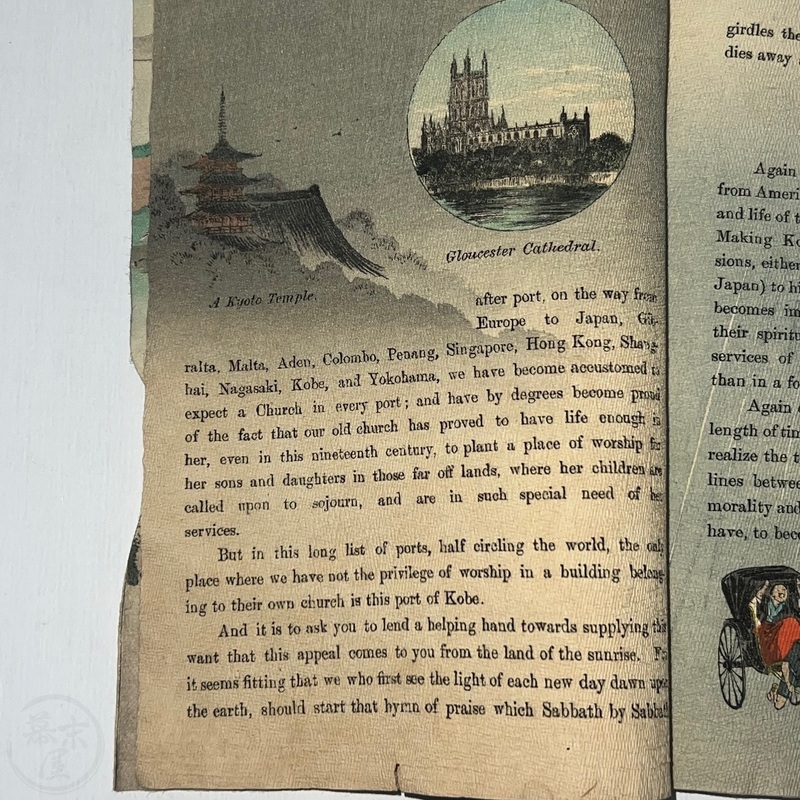 Gloucester Cathedral.
A Kyoto Temple.
after port, on the way from
Europe to Japan, Gib-
ralta, Malta, Aden, Colombo, Penang, Singapore, Hong Kong, Shang-
hai, Nagasaki, Kobe, and Yokohama, we have become accustomed to
expect a Church in every port; and have by degrees become proud
of the fact that our old church has proved to have life enough in
her, even in this nineteenth century, to plant a place of worship for
her sons and daughters in those far off lands, where her children are
called upon to sojourn, and are in such special need of her
services.
But in this long list of ports, half circling the world, the only
place where we have not the privilege of worship in a building belong-
ing to their own church is this port of Kobe.
And it is to ask you to lend a helping hand towards supplying this
want that this appeal comes to you from the land of the sunrise. For
it seems fitting that we who first see the light of each new day dawn upon
the earth, should start that hymn of praise which Sabbath by Sabbath
girdles the
dies away
Again
from Ameri
and life of t
Making Ko
sions, either
Japan) to hi
becomes im
their spiritu
services of
than in a fo
Again
length of tim
realize the t
lines betwee
morality and
have, to beco
幕末屋